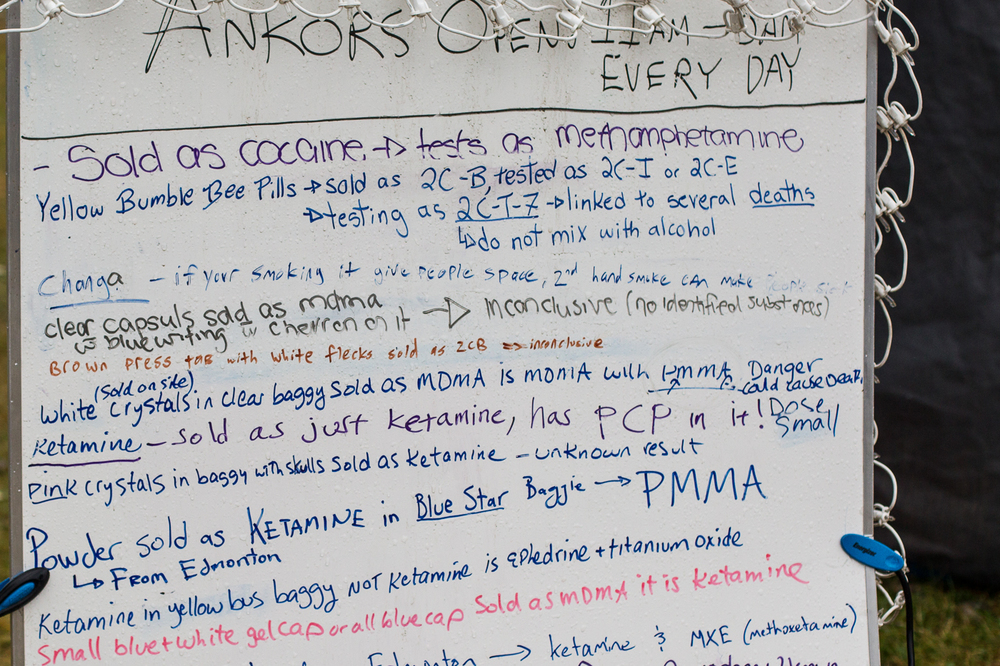 ANKORS OPEN 11AM - 3AM
EVERY DAY
- Sold as cocaine → tests as methamphetamine
Yellow Bumble Bee Pills → sold as 2C-B, tested as 2C-I or 2C-E
→ testing as 2C-T-7 → linked to several deaths
↳ do not mix with alcohol
Changa - if your smoking it give people space, 2nd hand smoke can make people sick
clear capsuls sold as mdma → inconclusive (no identified substances)
w blue writing w chevron on it
Brown press tab with white flecks sold as 2CB ⇒ inconclusive
(Sold on site)
White crystals in clear baggy Sold as MDMA is MDMA with PMMA Danger
could cause Death
Ketamine - sold as just ketamine, has PCP in it! Dose Small
Pink crystals in baggy with skulls Sold as Ketamine - unknown result
Powder sold as KETAMINE in Blue Star Baggie → PMMA
↳ From Edmonton
Ketamine in yellow bus baggy NOT Ketamine is Ephedrine + titanium oxide
Small blue + white gelcap or all blue cap Sold as MDMA it is ketamine
Edmonton → ketamine & MXE (methoxetamine)
energizer